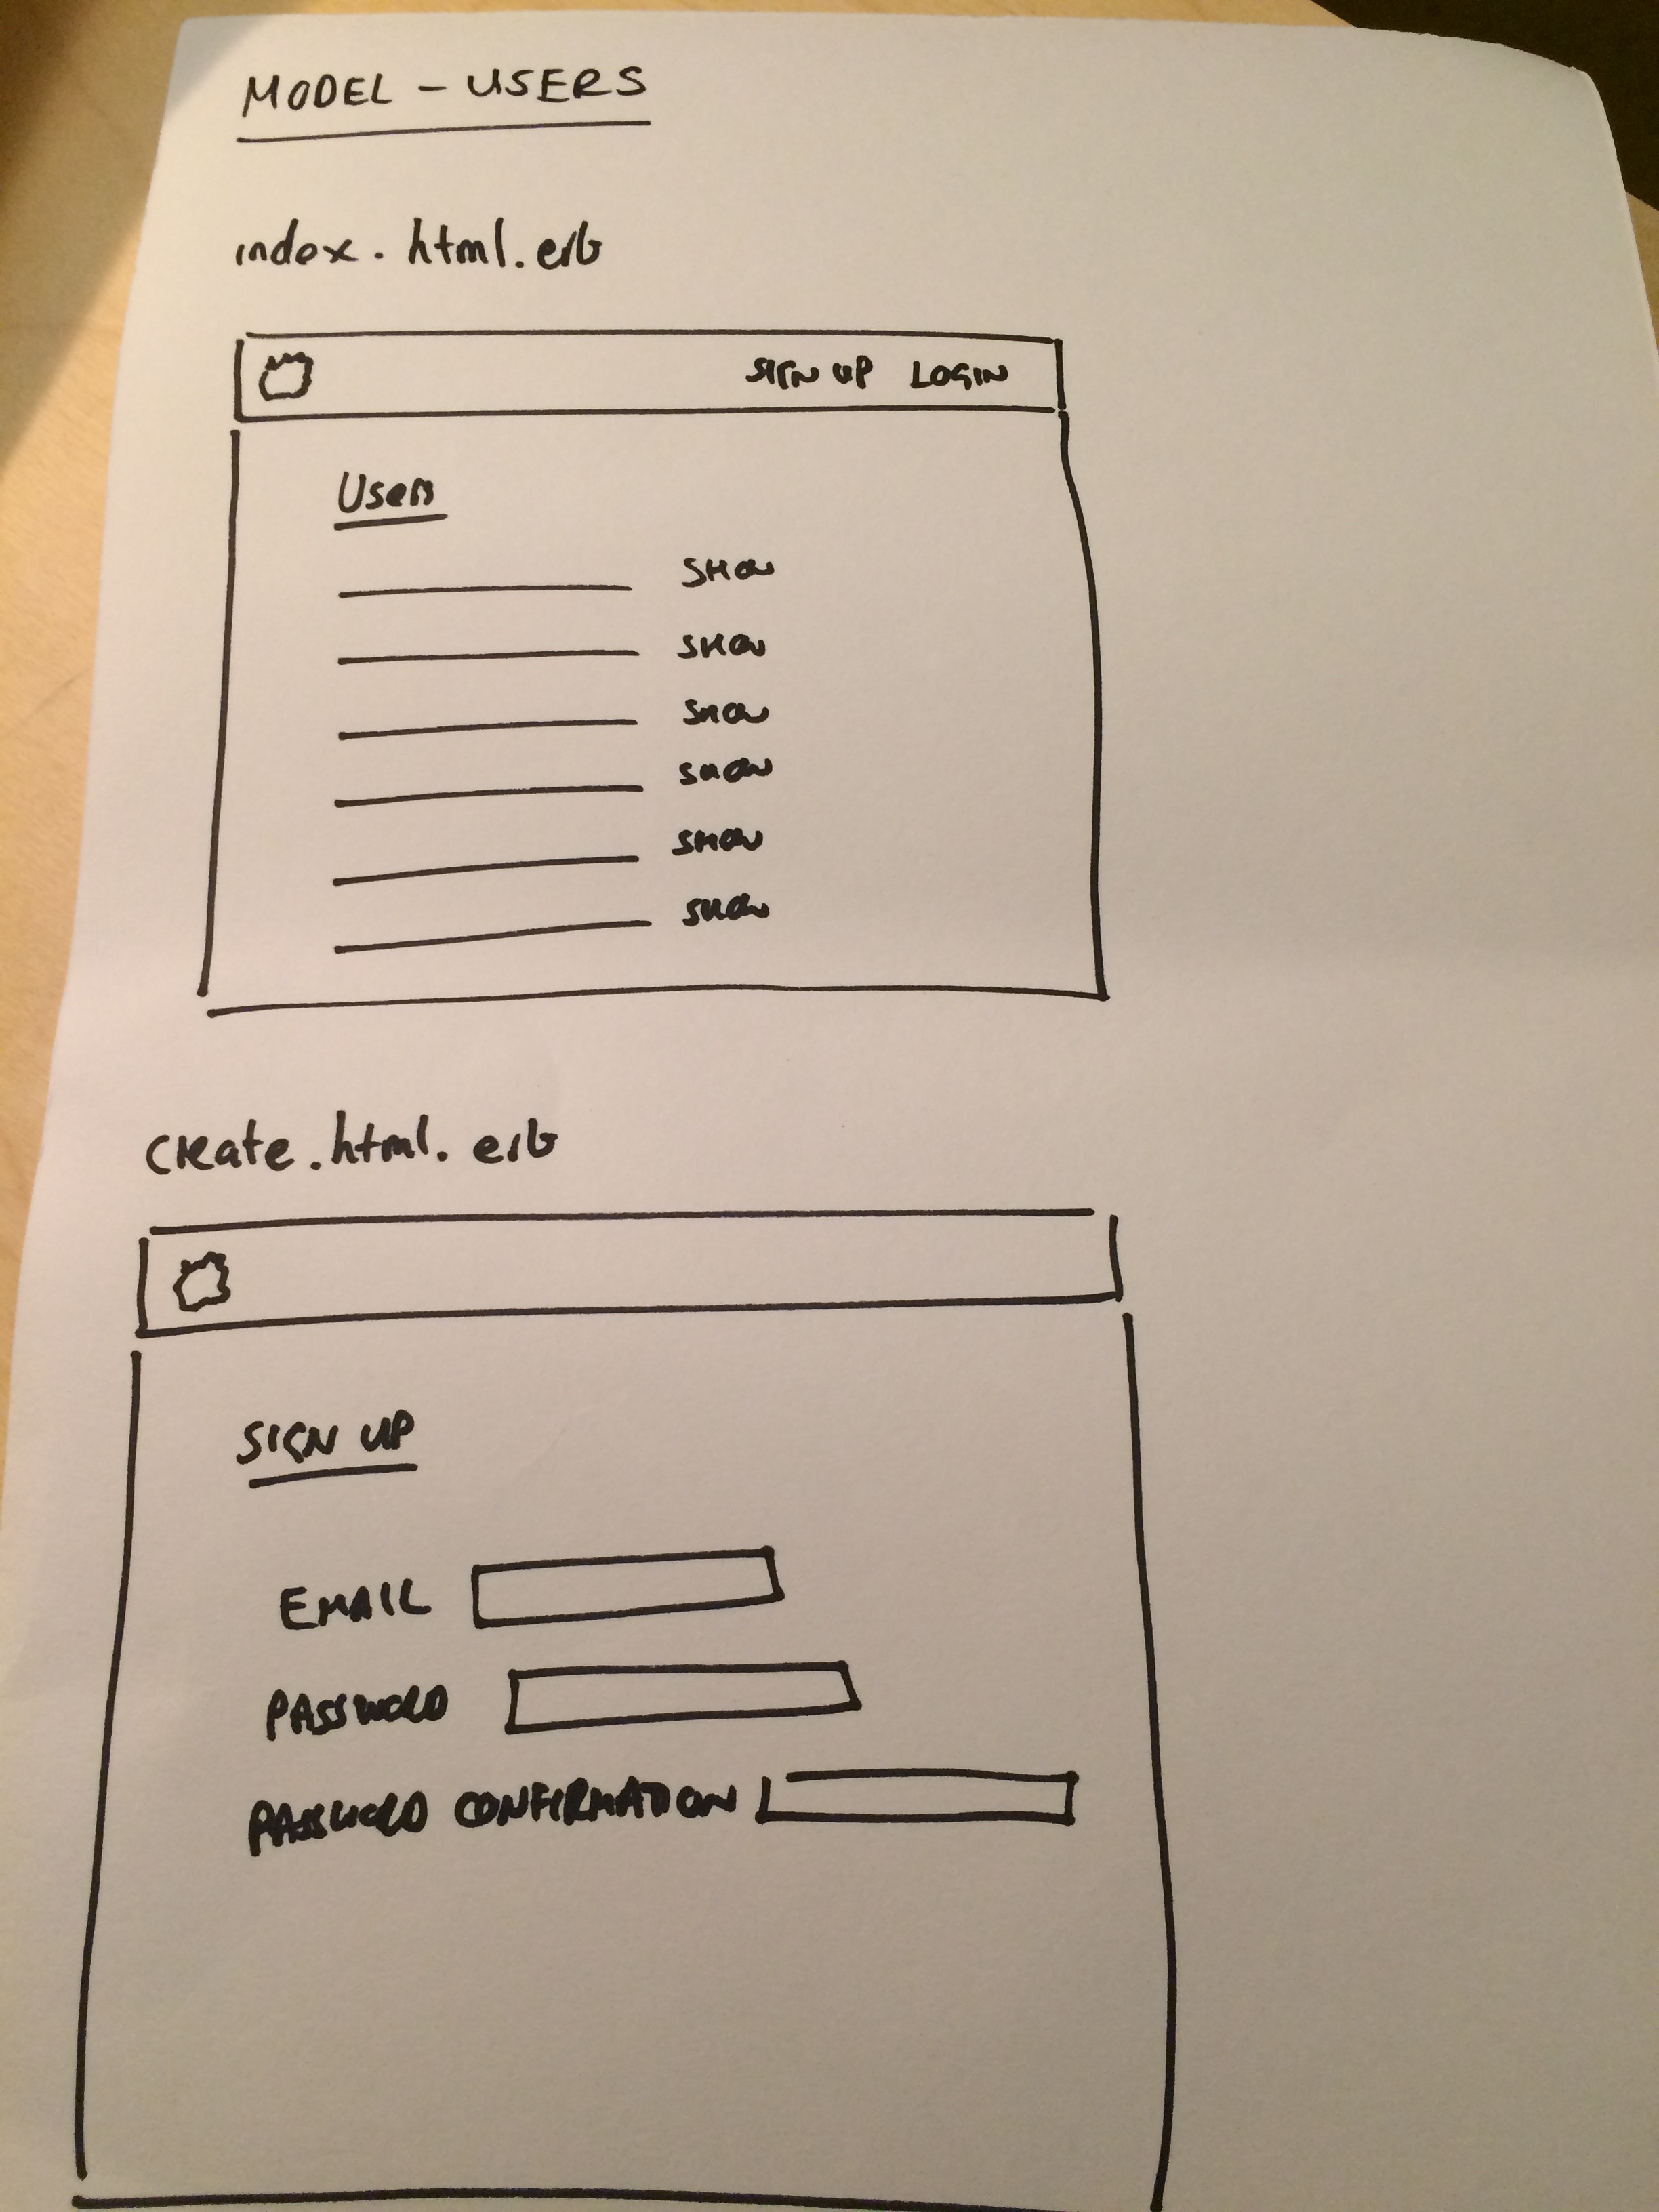 MODEL - USERS
index.html.erb
SIGN UP LOGIN
Users
SHOW
SHOW
SHOW
SHOW
SHOW
SHOW
create.html.erb
SIGN UP
EMAIL
PASSWORD
PASSWORD CONFIRMATION